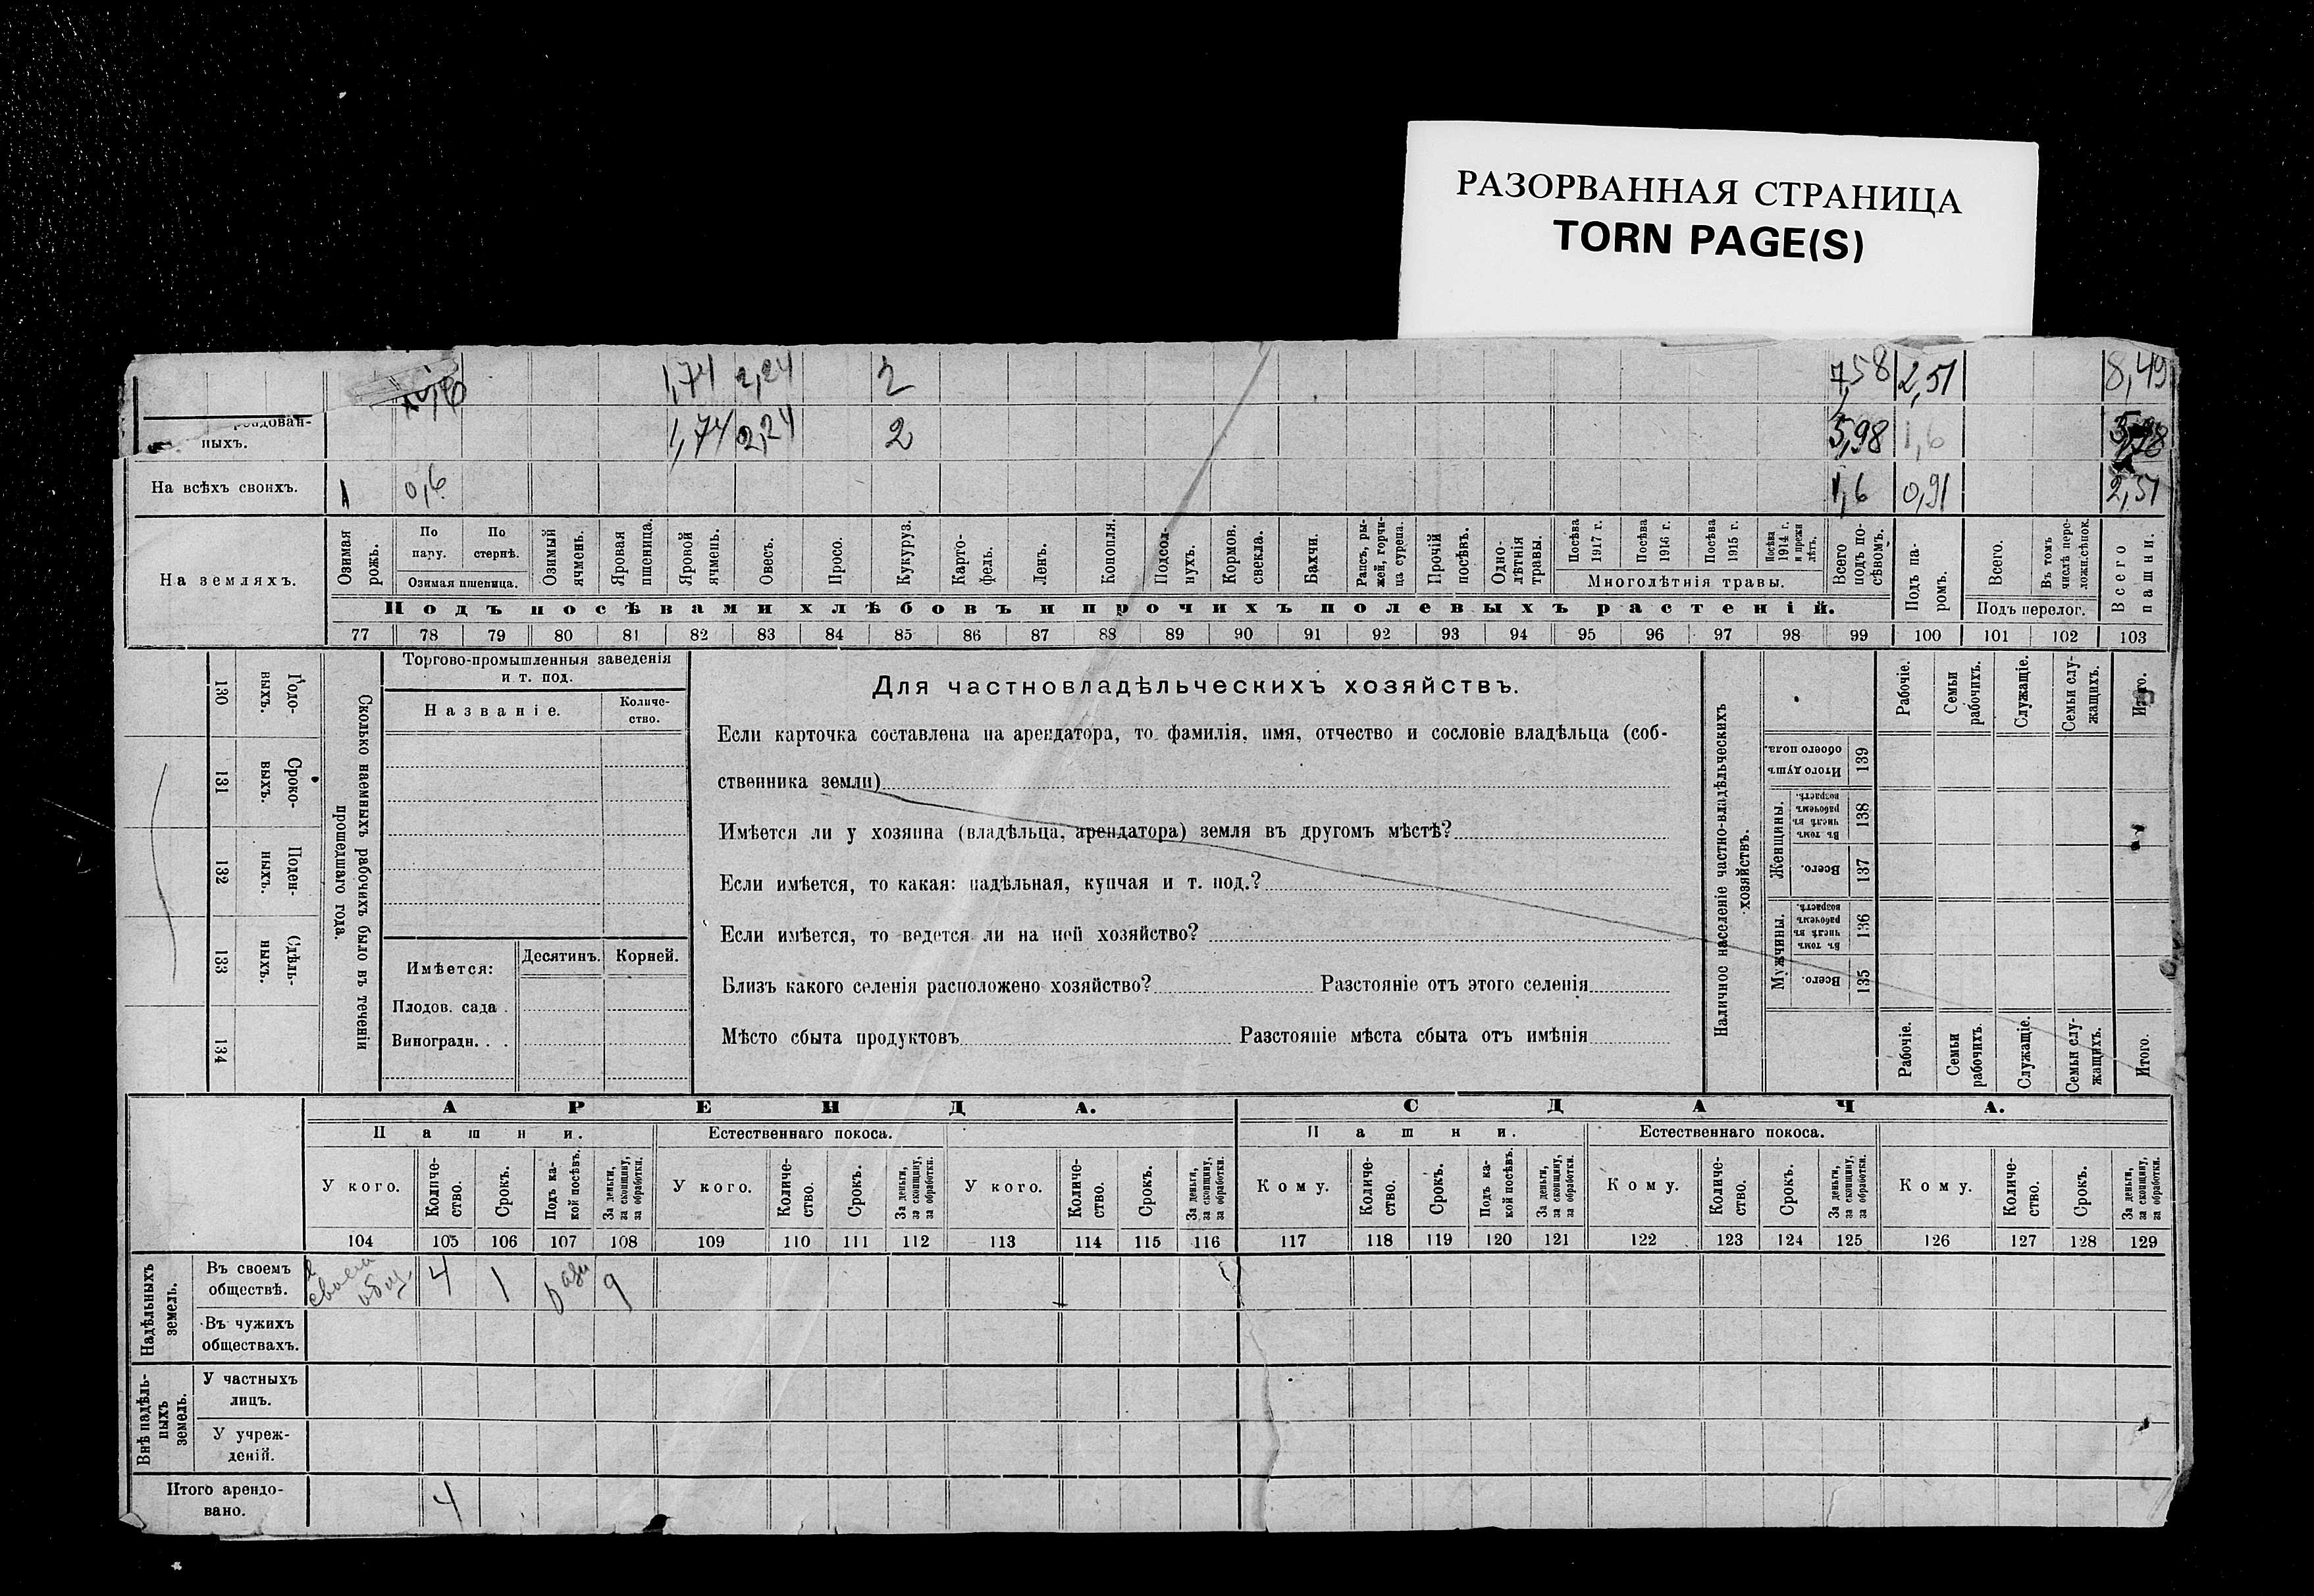 РАЗОРВАННАЯ СТРАНИЦА
TORN PAGE(S)
1,74 2,24 2 7,58 2,51 8,49
ныхъ. 1,74 2,24 2 5,98 1,6
На всѣхъ своихъ. 1 0,6 1,6 0,91 2,51
На земляхъ.
Озимая рожь.
По пару.
По стернѣ.
Озимая пшеница.
Озимый ячмень.
Яровая пшеница.
Яровой ячмень.
Овесъ.
Просо.
Кукуруз.
Карто-
фель.
Ленъ.
Конопля.
Подсол-
нухъ.
Кормов. свекла.
Бахчи.
Рапсъ, ры-
жей, горчи-
ца сурепа.
Прочій посѣвъ.
Одно-
лѣтнія травы.
Посѣва 1917 г.
Посѣва 1916 г.
Посѣва 1915 г.
Посѣва 1914 г. и прежн лѣтъ.
Многолѣтнія травы.
Всего подъ по-
сѣвомъ.
Подъ па-
ромъ.
Всего.
Въ томъ числѣ пере-
ложн.сѣнок.
Подъ перелог.
Всего пашни.
Подъ посѣвами хлѣбовъ и прочихъ полевыхъ растеній.
77 78 79 80 81 82 83 84 85 86 87 88 89 90 91 92 93 94 95 96 97 98 99 100 101 102 103
130 Годо-
выхъ.
131 Сроко-
выхъ.
132 Поден-
ныхъ.
133 Сдѣль-
ныхъ.
134
Сколько наемныхъ рабочихъ было въ теченіи
прошедшаго года.
Торгово-промышленныя заведенія
и т. под.
Названіе.
Количе-
ство.
Имѣется:
Десятинъ. Корней.
Плодов. сада .
Виноградн. . .
Для частновладѣльческихъ хозяйствъ.
Если карточка составлена на арендатора, то фамилія, имя, отчество и сословіе владѣльца (соб-
ственника земли)
Имѣется ли у хозяина (владѣльца, арендатора) земля въ другомъ мѣстѣ?
Если имѣется, то какая: надѣльная, купчая и т. под.?
Если имѣется, то ведется ли на ней хозяйство?
Близъ какого селенія расположено хозяйство? Разстояніе отъ этого селенія
Мѣсто сбыта продуктовъ Разстояніе мѣста сбыта отъ имѣнія
Наличное населеніе частно-владѣльческихъ
хозяйствъ.
Рабочіе.
Семьи рабочихъ.
Служащіе.
Семьи слу-
жащихъ.
Итого.
Итого душъ обоего пола. 139
Женщины.
Въ томъ числѣ въ рабочемъ возрастѣ. 138
Всего. 137
Мужчины.
Въ томъ числѣ въ рабочемъ возрастѣ. 136
Всего. 135
Рабочіе.
Семьи рабочихъ.
Служащіе.
Семьи слу-
жащихъ.
Итого.
АРЕНДА. СДАЧА.
Пашни. Естественнаго покоса. Пашни. Естественнаго покоса.
У кого.
Количе-
ство.
Срокъ.
Подъ ка-
кой посѣвъ.
За деньги, за скопщину, за обработки.
У кого.
Количе-
ство.
Срокъ.
За деньги, за скопщину, за обработки.
У кого.
Количе-
ство.
Срокъ.
За деньги, за скопщину, за обработки.
Кому.
Количе-
ство.
Срокъ.
Подъ ка-
кой посѣвъ.
За деньги, за скопщину, за обработки.
Кому.
Количе-
ство.
Срокъ.
За деньги, за скопщину, за обработки.
Кому.
Количе-
ство.
Срокъ.
За деньги, за скопщину, за обработки.
104 105 106 107 108 109 110 111 112 113 114 115 116 117 118 119 120 121 122 123 124 125 126 127 128 129
Надѣльныхъ земель.
Въ своемъ
обществѣ. 4 1
Въ чужихъ
обществахъ.
Внѣ надѣль-
ныхъ
земель.
У частныхъ
лицъ.
У учреж-
деній.
Итого арендо-
вано. 4